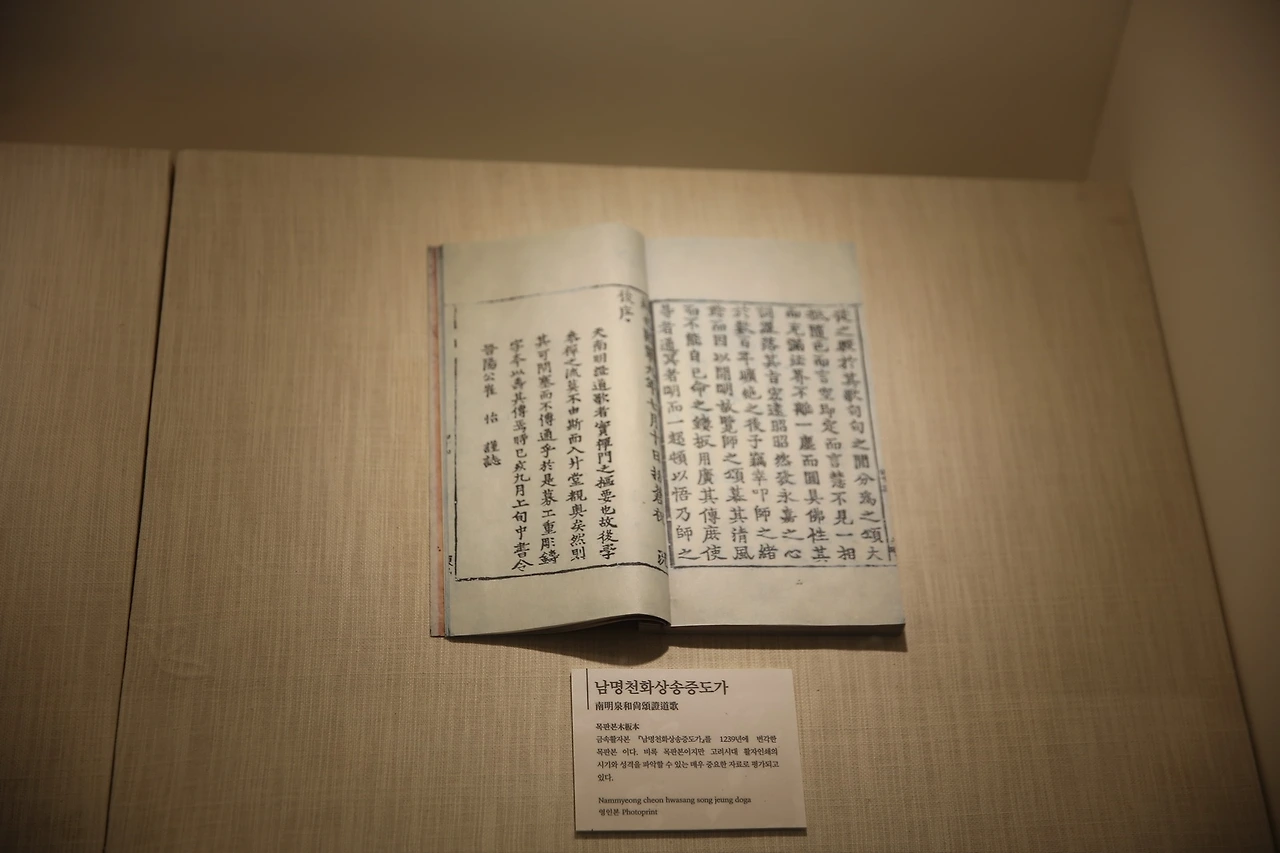 之觀於其歌句句之間分爲之頌大
隨色而言空即定而言慧不見一相
而充滿法界不離一塵而圓具佛性其
詞羅落其旨宏遠昭昭然發永嘉之心
於數百年曠絶之後予竊幸叩師之緒
而因以開明故覽師之頌慕其清風
而不能自已命之鏤板用廣其傳庶使
者適冥者明而一超頓以悟乃師之
後序
夫南明證道歌者實禪門之樞要也故後學
叅禪之流莫不由斯而入升堂覩奧矣然則
其可閇塞而不傳通乎於是募工重彫鑄
字本以壽其傳焉時己亥九月上旬中書令
晉陽公崔 怡 謹誌
남명천화상송증도가
南明泉和尙頌證道歌
목판본木板本
금속활자본 『남명천화상송증도가』를 1239년에 번각한
목판본 이다. 비록 목판본이지만 고려시대 활자인쇄의
시기와 성격을 파악할 수 있는 매우 중요한 자료로 평가되고
있다.
Nammyeong cheon hwasang song jeung doga
영인본 Photoprint